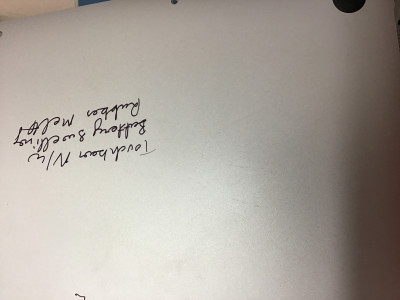 Touchbar N/w
Battery Swelling
Rubber Melted